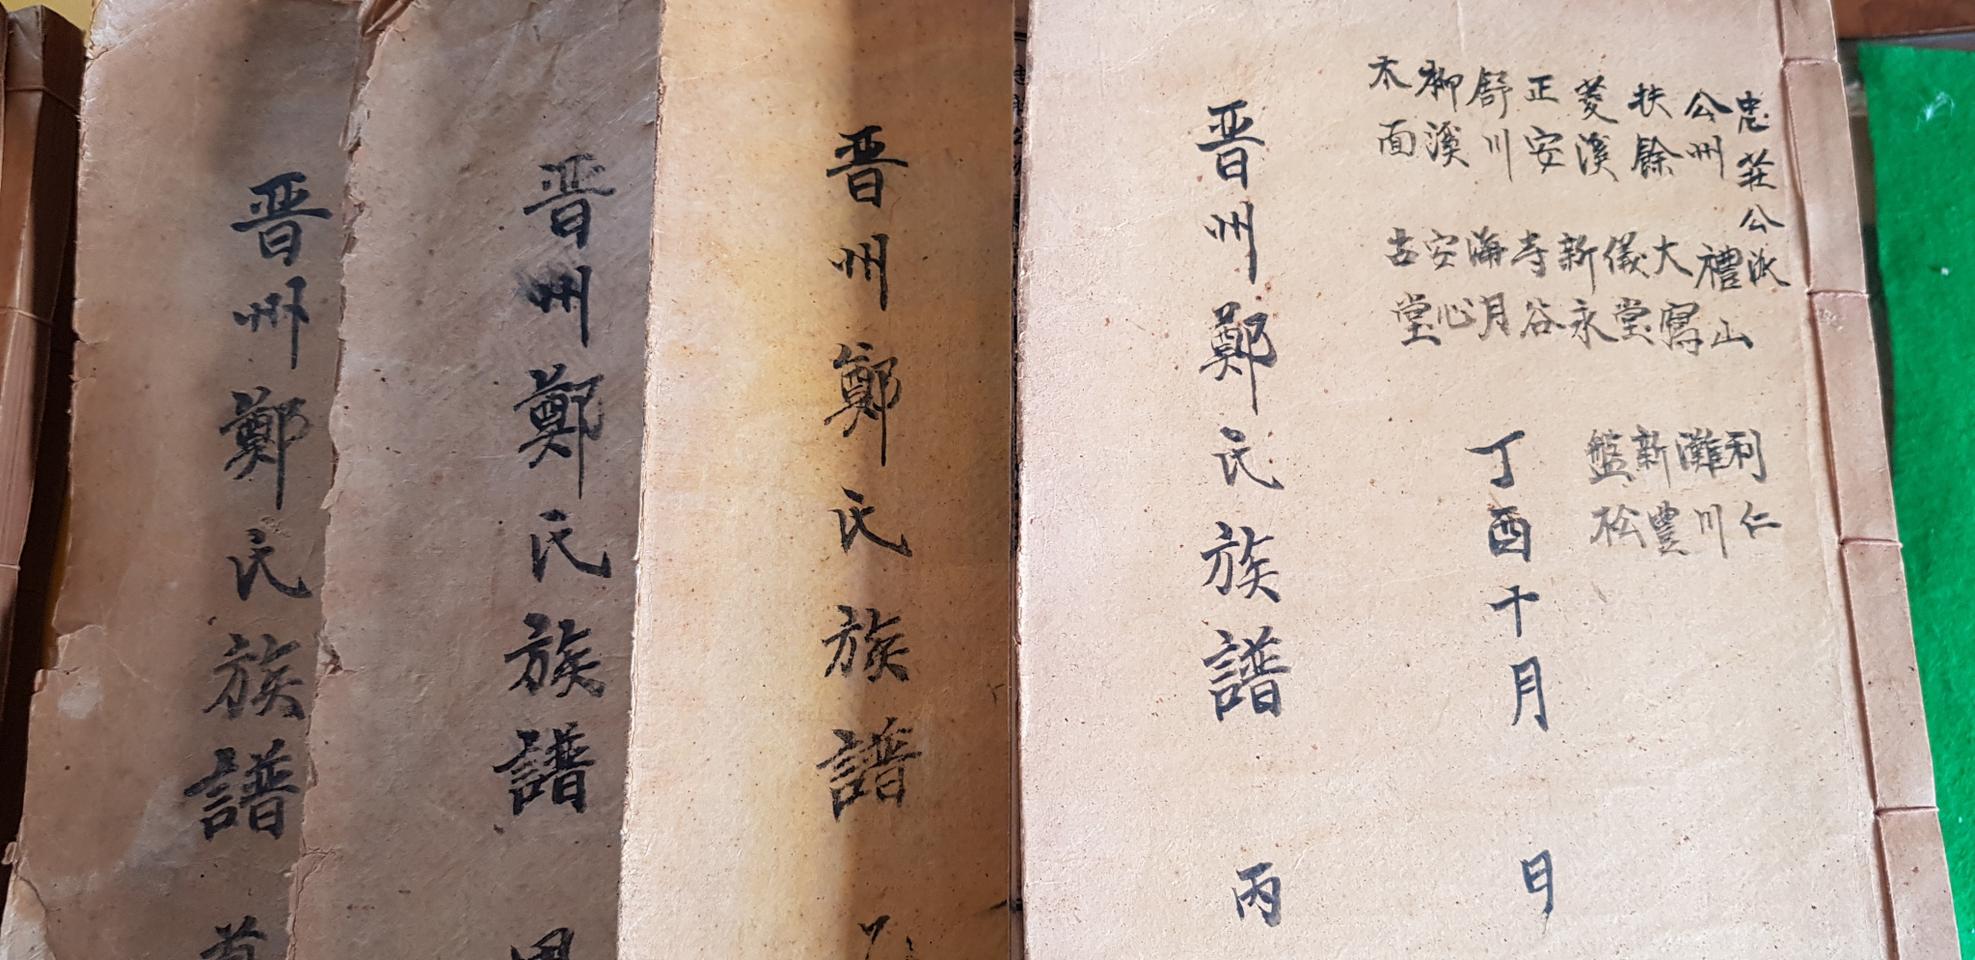 忠莊公派
公州
扶餘
菱溪
正安
舒川
柳溪
木面
禮山
大
儀堂
新永
寺谷
海月
安心
古堂
利仁
灘川
新豊
盤松
丁酉十月 日
晋州鄭氏族譜 丙
晋州鄭氏族譜
晋州鄭氏族譜
晋州鄭氏族譜